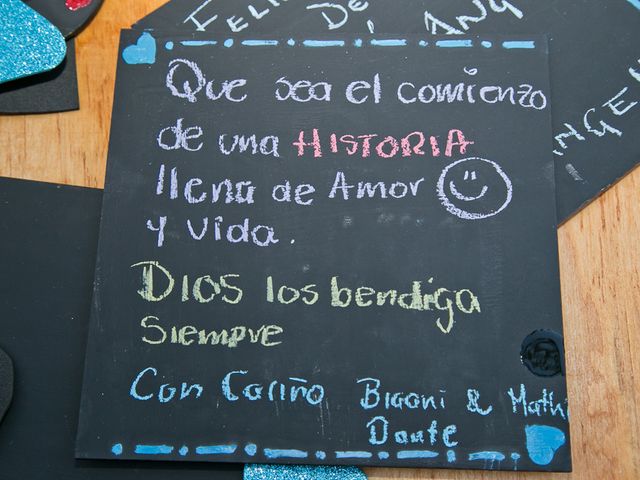 Que sea el comienzo
de una HISTORIA
llena de Amor
y vida.
Dios los bendiga
siempre
Con Cariño Bigoni & Mathi
Dante